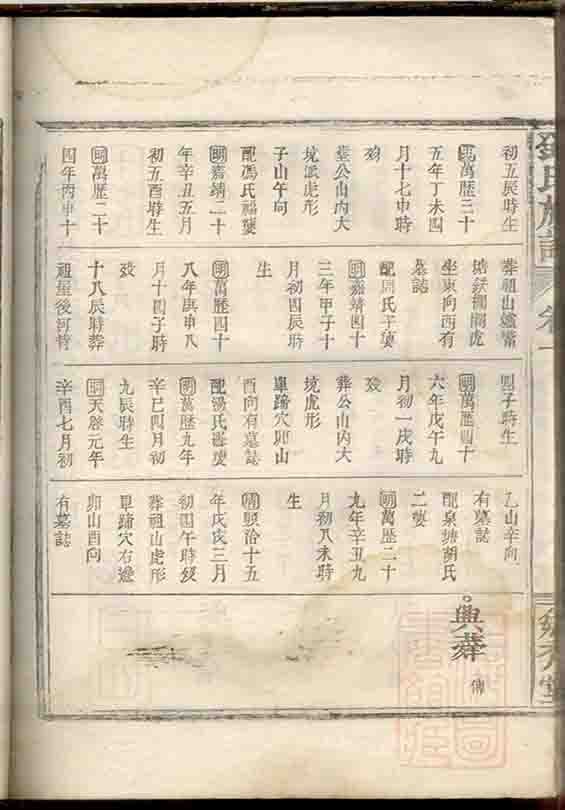 初五辰時生
明萬歷三十
五年丁未四
月十七申時
歿
葬公山內大
境派虎形
子山午向
配馮氏福嫂
明嘉靖二十
年辛丑五月
初五酉時生
明萬歷二十
四年丙申十
葬祖山爐嘴
坐東向西有
墓誌
明嘉靖四十
三年甲子十
月初四辰時
生
明萬歷四十
八年庚申八
月十四子時
歿
十八辰時葬
祖屋後河背
四子時生
明萬歷四十
六年戊午九
月初一戌時
歿
葬公山內大
境虎形
單蹄穴卯山
酉向有墓誌
明萬歷九年
辛巳四月初
九辰時生
明天啟元年
辛酉七月初
乙山辛向
有墓誌
配泉塘胡氏
二嫂
明萬歷二十
九年辛丑九
月初八未時
生
清順治十五
年戊戌三月
初四午時歿
葬祖山虎形
單蹄穴右邊
卯山酉向
有墓誌
興莽 傳
氏族譜
卷一